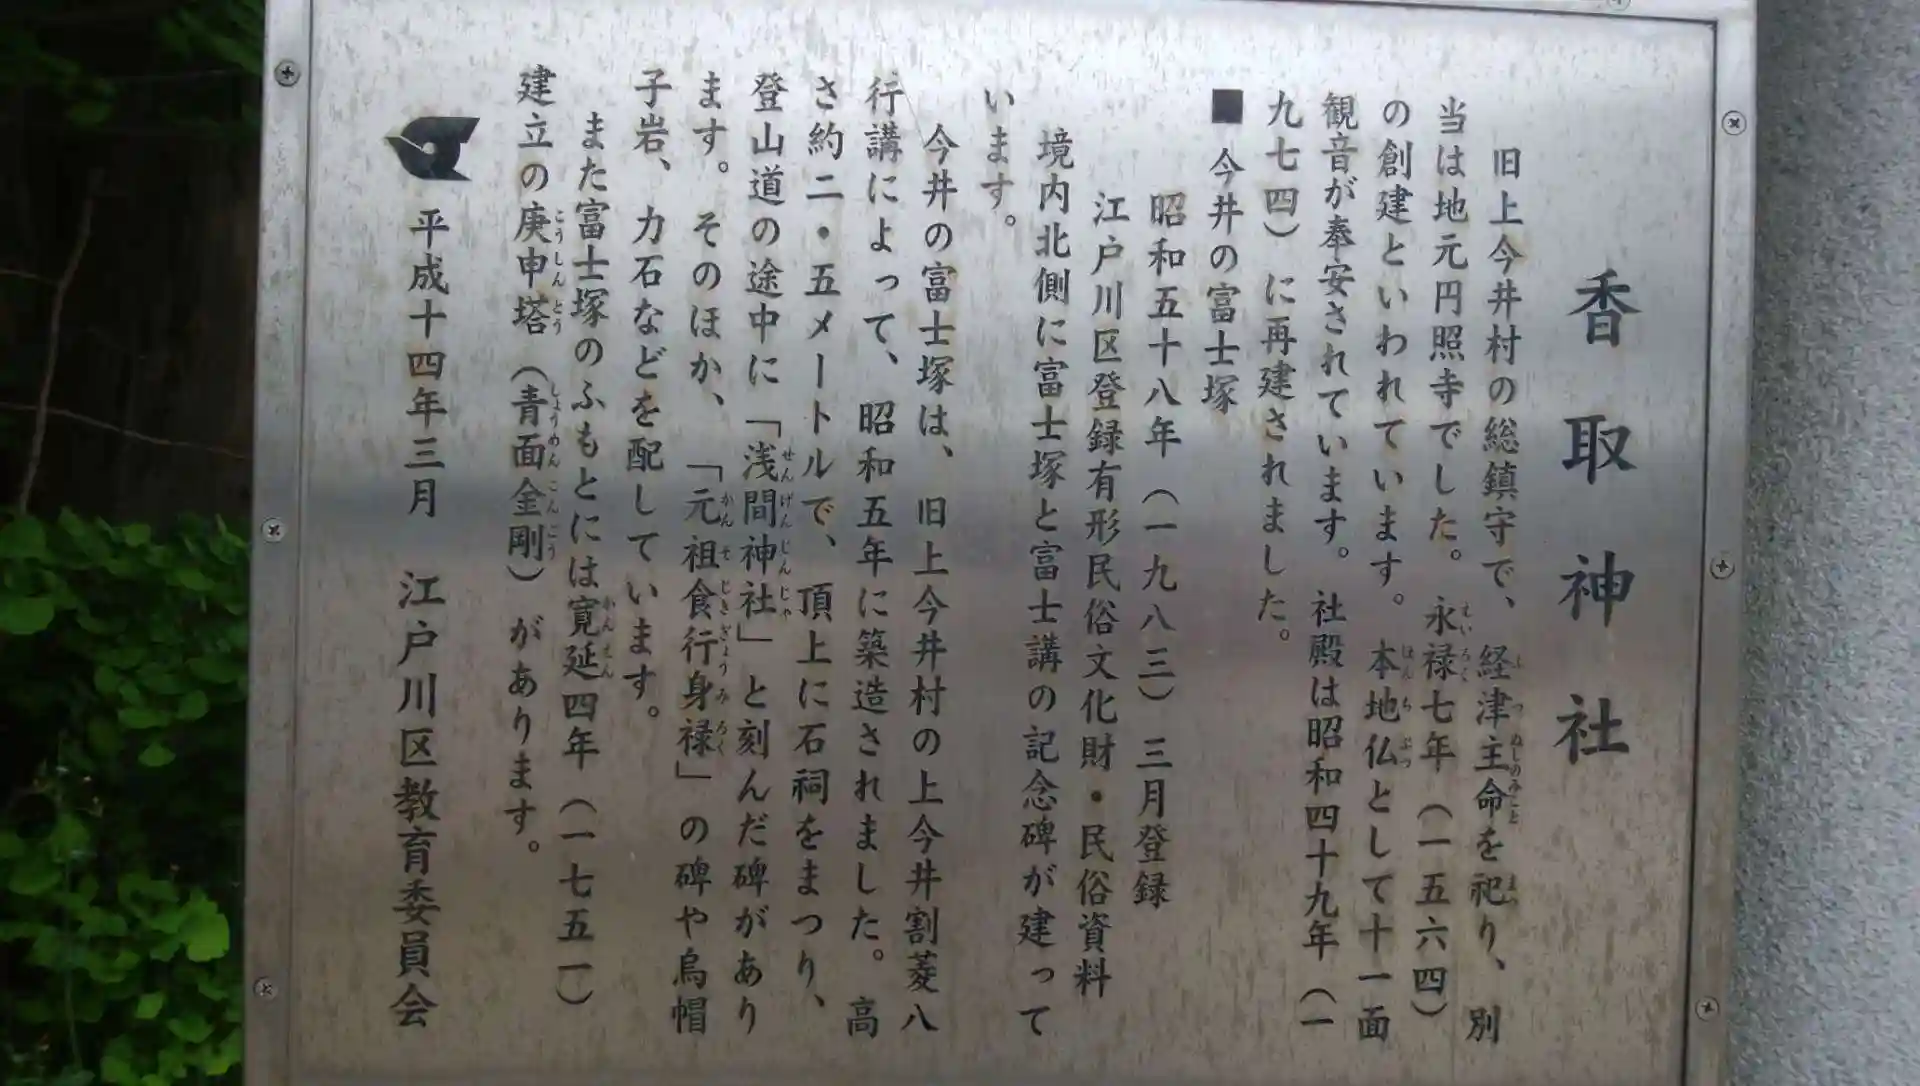 香取神社
旧上今井村の総鎮守で、経津主命を祀り、別
当は地元円照寺でした。永禄七年（一五六四）
の創建といわれています。本地仏として十一面
観音が奉安されています。社殿は昭和四十九年（一
九七四）に再建されました。
■今井の富士塚
昭和五十八年（一九八三）三月登録
江戸川区登録有形民俗文化財・民俗資料
境内北側に富士塚と富士講の記念碑が建って
います。
今井の富士塚は、旧上今井村の上今井割菱八
行講によって、昭和五年に築造されました。高
さ約二・五メートルで、頂上に石祠をまつり、
登山道の途中に「浅間神社」と刻んだ碑があり
ます。そのほか、「元祖食行身禄」の碑や烏帽
子岩、力石などを配しています。
また富士塚のふもとには寛延四年（一七五一）
建立の庚申塔（青面金剛）があります。
平成十四年三月　江戸川区教育委員会